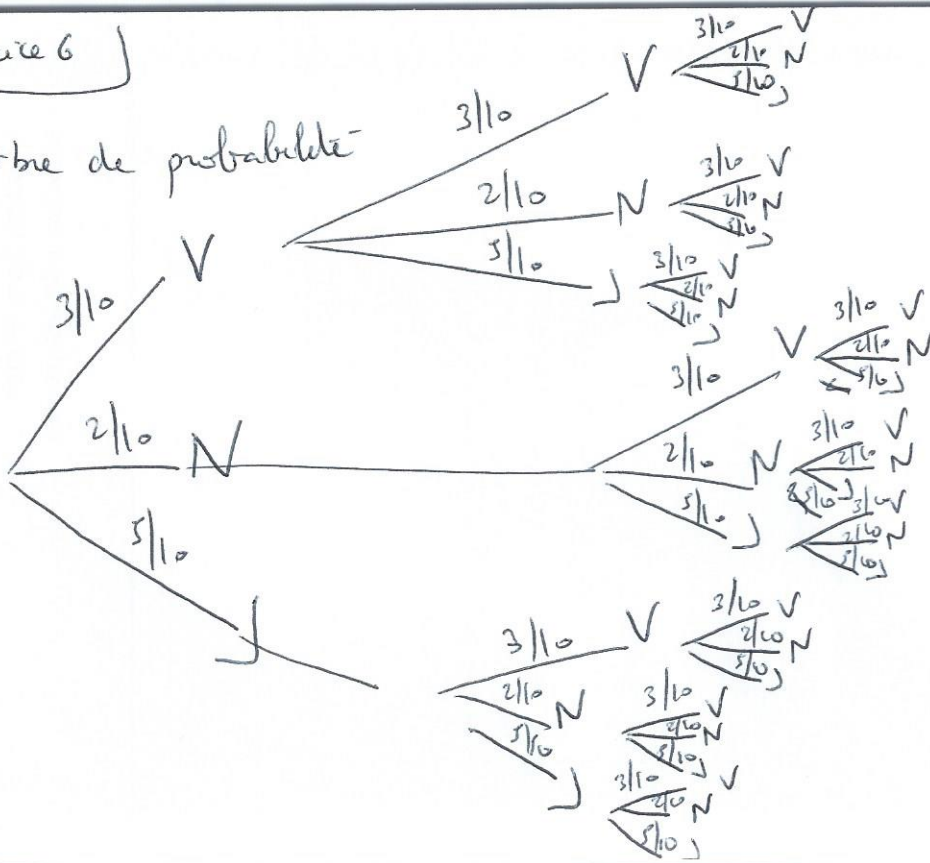 ice 6
bre de probabilité
3/10 V
2/10 N
5/10 J
3/10 V
2/10 N
5/10 J
3/10 V
2/10 N
5/10 J
3/10 V
2/10 N
5/10 J
3/10 V
2/10 N
5/10 J
3/10 V
2/10 N
5/10 J
3/10 V
2/10 N
5/10 J
3/10 V
2/10 N
5/10 J
3/10 V
2/10 N
5/10 J
3/10 V
2/10 N
5/10 J
3/10 V
2/10 N
5/10 J
3/10 V
2/10 N
5/10 J
3/10 V
2/10 N
5/10 J